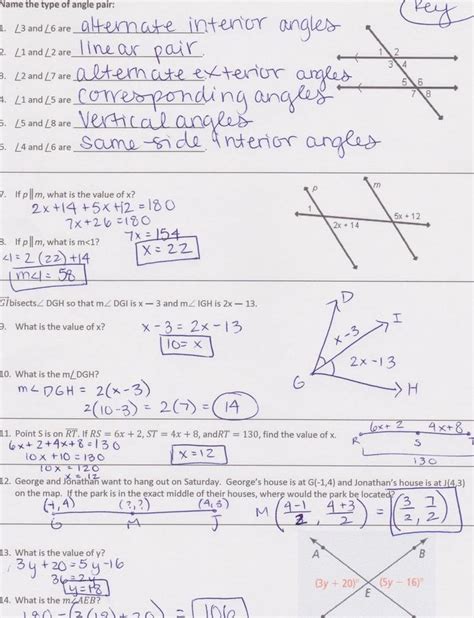 Name the type of angle pair: Key
1. ∠3 and ∠6 are alternate interior angles
2. ∠1 and ∠2 are linear pair.
3. ∠2 and ∠7 are alternate exterior angles
4. ∠1 and ∠5 are corresponding angles
5. ∠5 and ∠8 are Vertical angles
6. ∠4 and ∠6 are same-side interior angles
1 2
3 4
5 6
7 8
7. If p∥m, what is the value of x?
2x+14+5x+12=180
7x+26=180
7x=154
x=22
8. If p∥m, what is m<1?
<1=2(22)+14
m<1=58
p
m
1
2x + 14
5x + 12
GI bisects∠ DGH so that m∠ DGI is x — 3 and m∠ IGH is 2x — 13.
9. What is the value of x?
x-3=2x-13
10=x
D
I
x-3
2x-13
G
H
10. What is the m∠DGH?
m∠DGH = 2(x-3)
2(10-3)=2(7)= 14
11. Point S is on RT. If RS = 6x + 2, ST = 4x + 8, andRT = 130, find the value of x.
6x+2+4x+8=130
10x+10=130
10x=120
x=12
x=12
6x+2 4x+8
R S T
130
12. George and Jonathan want to hang out on Saturday. George's house is at G(-1,4) and Jonathan's house is at J(4,3)
on the map. If the park is in the exact middle of their houses, where would the park be located?
(-1,4) (?,?) (4,3)
G M J
M(4-1/2, 4+3/2) = (3/2, 7/2)
13. What is the value of y?
3y+20=5y-16
36=2y
y=18
A
B
(3y + 20)°
(5y — 16)°
E
14. What is the m∠AEB?
180-(3(18)+20) = 106